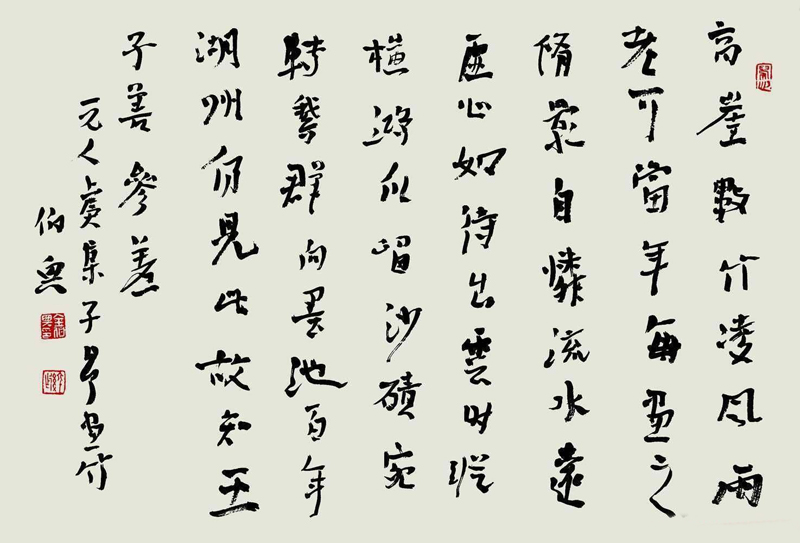 高崖數竹凌風雨
老可當年每畫之
脩景自憐流水遠
虛心如待出雲時縱
橫鴻爪留沙磧宛
轉鵞群向墨池百年
湖州仍見此故知王
子善參差
元人虞集子昂畫竹
伯興